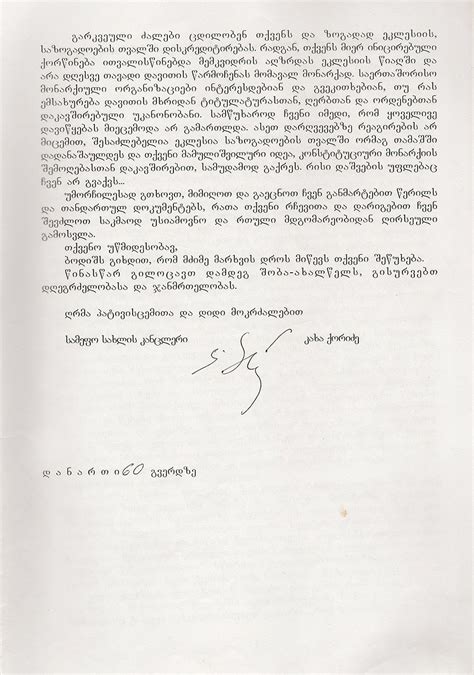 გარკვეული ძალები ცდილობენ თქვენს და ზოგადად ეკლესიის,
საზოგადოების თვალში დისკრედიტირებას. რადგან, თქვენს მიერ ინიცირებული
ქორწინება ითვალისწინებდა მემკვიდრის აღზრდას ეკლესიის წიაღში და
არა დღესვე თავადი დავითის წარმოჩენას მომავალ მონარქად. საერთაშორისო
მონარქიული ორგანიზაციები ინტერესდებიან და გვეკითხებიან, თუ რას
ემსახურება დავითის მხრიდან ტიტულატურასთან, ღერბთან და ორდენებთან
დაკავშირებული უკანონობანი. სამწუხაროდ ჩვენი იმედი, რომ ყოველივე
დავიწყებას მიეცემოდა არ გამართლდა. ასეთ დარღვევებზე რეაგირების არ
მიცემით, შესაძლებელია ეკლესია საზოგადოების თვალში ორმაგ თამაშში
დადანაშაულდეს და თქვენი მამულიშვილური იდეა, კონსტიტუციური მონარქიის
შემოღებასთან დაკავშირებით, სამუდამოდ გაქრეს. რისი დაშვების უფლებაც
ჩვენ არ გვაქვს...
უმორჩილესად გთხოვთ, მიმიღოთ და გაეცნოთ ჩვენ განმარტებით წერილს
და თანდართულ დოკუმენტებს, რათა თქვენი რჩევითა და დარიგებით ჩვენ
შევძლოთ საკმაოდ უსიამოვნო და რთული მდგომარეობიდან ღირსეული
გამოსვლა.
თქვენო უწმიდესობავ,
ბოდიშს გიხდით, რომ მძიმე მარხვის დროს მიწევს თქვენი შეწუხება.
წინასწარ გილოცავთ დამდეგ შობა-ახალწელს, გისურვებთ
დღეგრძელობასა და ჯანმრთელობას.
ღრმა პატივისცემითა და დიდი მოკრძალებით
სამეფო სახლის კანცლერი კახა ქორიძე
დანართი 60 გვერდზე